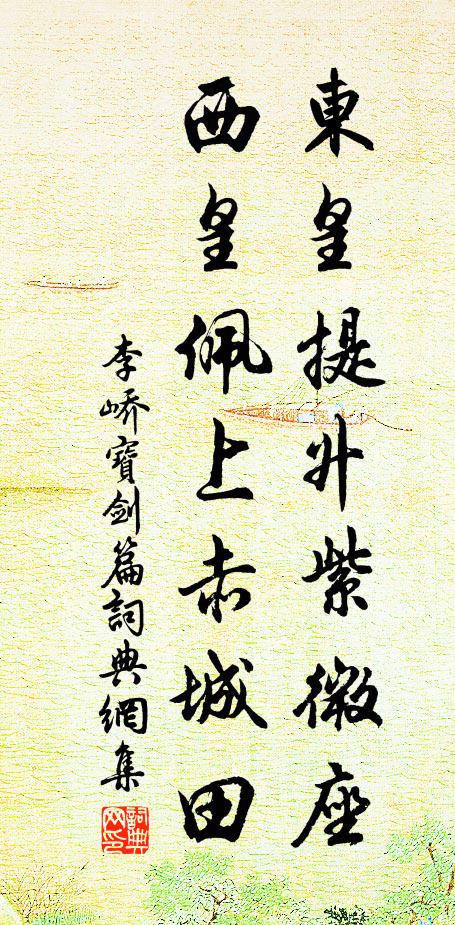 東皇提升紫微座
西皇佩上赤城田
李嶠寶劍篇詞典網集
詞典网印